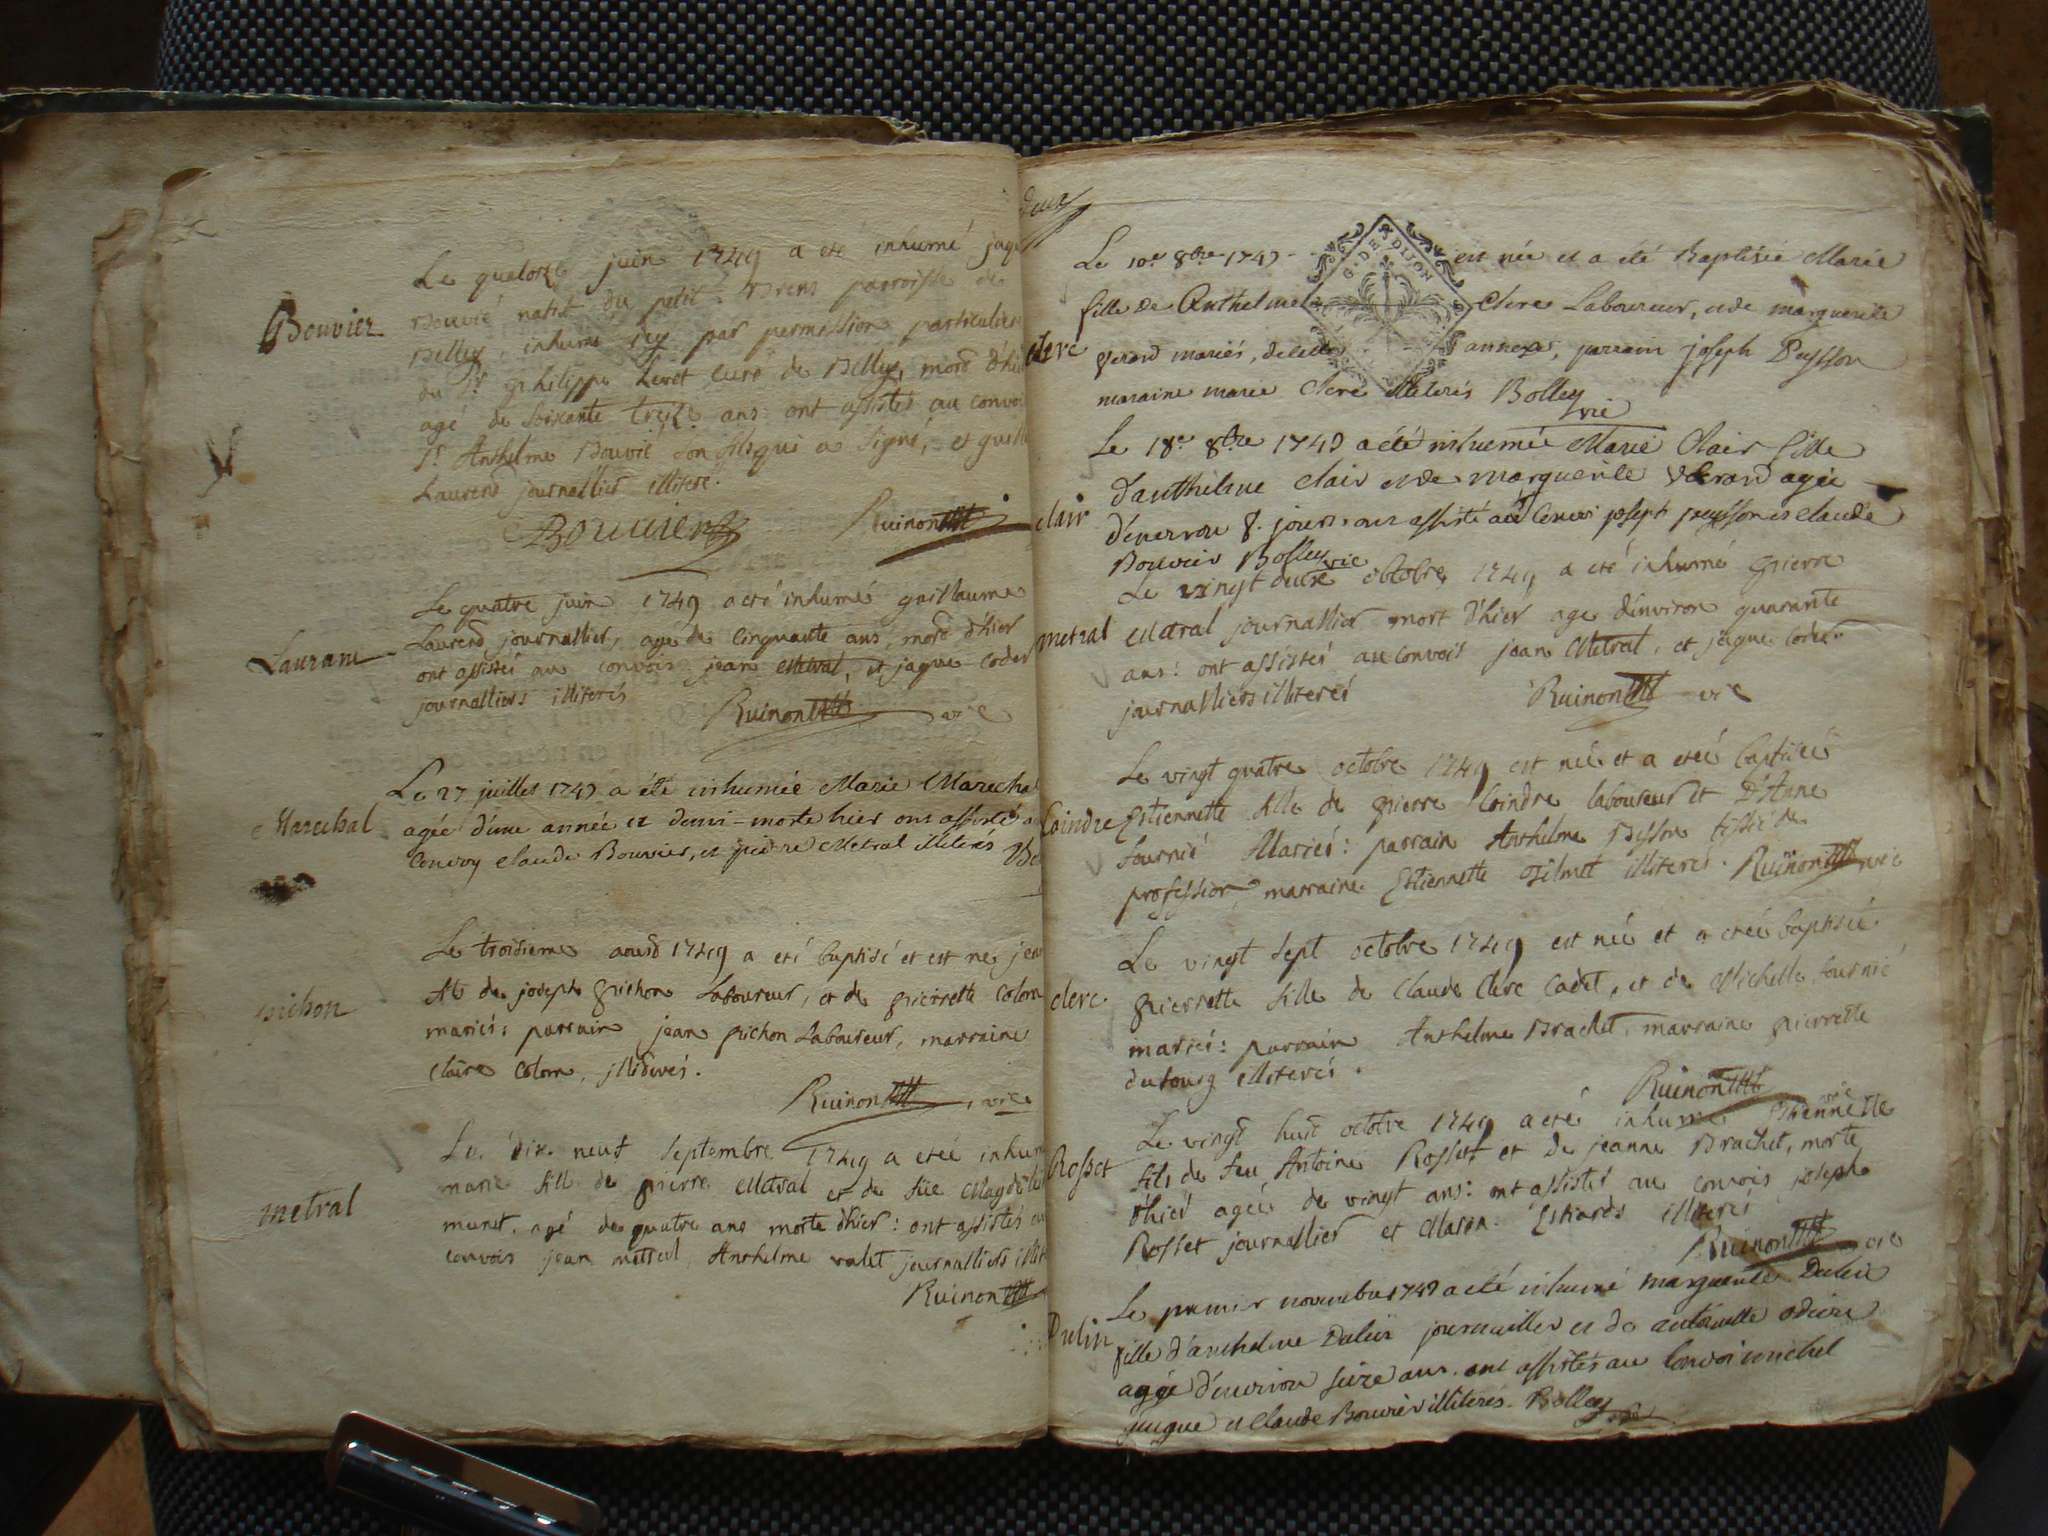 Bouvier
Le quatorze juin 1749 a eté inhumé jaq
Bouvié natif du petit Brens parroisse de
Belley, inhumé icy par permission particuliere
du Sr philippe curé de Belley, mord d'hi
agé de soixante treize ans ont assistes au convoi
Sr Anthelme Bouvié son fils qui a signé, et guill
Laurend journallier illiteré.
Bouvier Ruinon
Laurant
Le quatre juin 1749 a eté inhumé guillaume
Laurend journallier, agé de cinquante ans, mord d'hier
ont assistés au convois jean Metral, et jaque coder
journalliers illiterés
Ruinon vic
Marechal
Le 27 juillet 1749 a été inhumée Marie Marechal
agée d'une année et demi morte hier ont assisté a
Convoy claude Bouvier, et pierre Metral illiterés Bo
pichon
Le troisieme aousd 1749 a eté baptisé et est né jean
fils de joseph pichon Laboureur, et de pierrette colom
mariés; parrain jean pichon Laboureur, marraine
claire colom, illiterés.
Ruinon, vic
metral
Le dix neuf septembre 1749 a eteé inhum
marie fille de pierre Metral et de fue Magdele
munet, agé de quatre ans morte d'hier: ont assistés au
convois jean metral, Anthelme valet journalliers illit
Ruinon
deux
G. DE DIJON
clerc
Le 10e 8bre 1749 est née et a été Baptisée Marie
fille de Anthelme Clerc Laboureur, et de marguerite
verard mariés, de cette annexe, parrain joseph Peysson
maraine marie Clerc illiterés Bolley vic
clair
Le 18e 8bre 1749 a été inhumée Marie Clair fille
d'anthelme clair et de marguerite verard agée
d'environ 8 jours ont assisté au Convoi joseph peysson et claude
Bouvier Bolley vic
metral
Le vingt deux octobre 1749 a eté inhumé pierre
Metral journallier mort d'hier agé d'environ quarante
ans: ont assistés au convois jean Metral, et jaque coder
journalliers illiterés Ruinon vic
Coindre
Le vingt quatre octobre 1749 est neé et a eteé baptiseé
Estiennette fille de pierre Coindre laboureur et D'Anne
fournié Mariés: parrain Anthelme Besson tissié de
profession, marraine Estiennette illiterés. Ruinon vic
clerc
Le vingt sept octobre 1749 est neé et a eteé baptiseé
pierrette fille de Claude Clerc Cadet, et de Michelle fournié
mariés: parrain Anthelme Brachet, marraine pierrette
dubourg illiterés.
Ruinon vic
Rosset
Le vingt huit octobre 1749 a eté inhumé Etiennette
fils de feu Antoine Rosset et de jeanne Brachet, morte
d'hier ageé de vingt ans: ont assistés au convois joseph
Rosset journallier et illiterés
Ruinon vic
Dulin
Le premier novembre 1749 a été inhumé marguerite Dulin
fille d'anthelme Dulin journallier et de antoinette
agée d'environ seize ans. ont assistés au Convoi michel
guigue et Claude Bouvier illiterés. Bolley vic